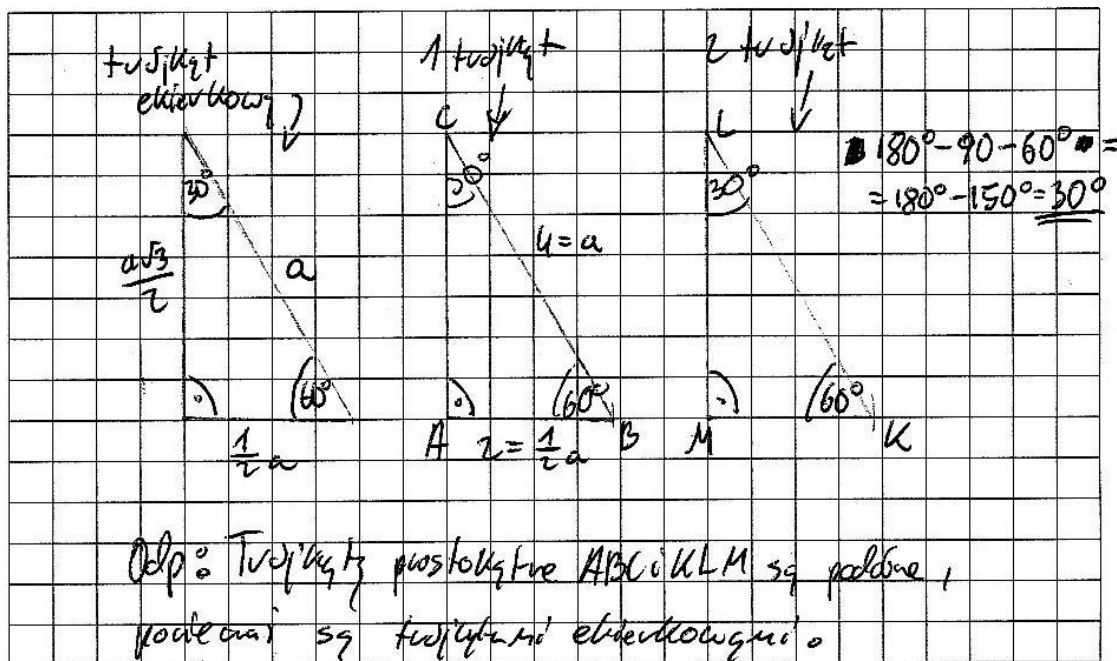 trójkąt
ekierkowy
1 trójkąt
2 trójkąt
C
L
180°-90-60° =
= 180°-150°=30°
30°
30°
30°
a√3/2
a
4=a
60°
60°
60°
1/2 a
A 2=1/2 a B
M
K
Odp: Trójkąty prostokątne ABC i KLM są podobne,
ponieważ są trójkątami ekierkowymi.